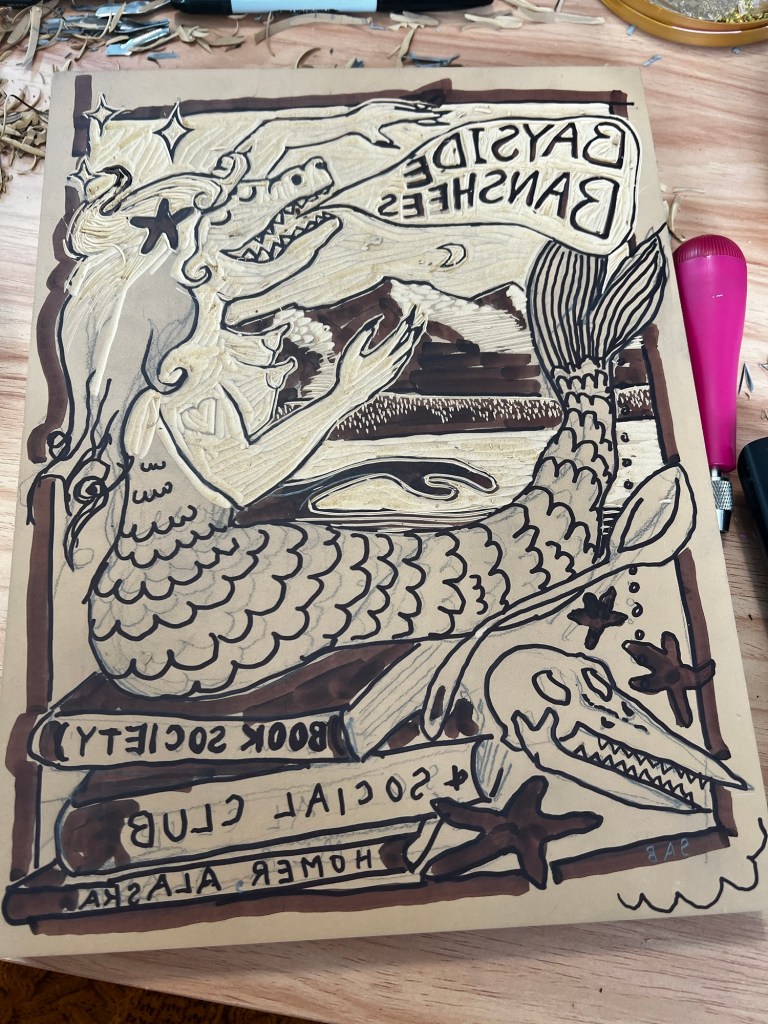 BAYSIDE
BANSHEES
BOOK SOCIETY
& SOCIAL CLUB
HOMER, ALASKA
SAB